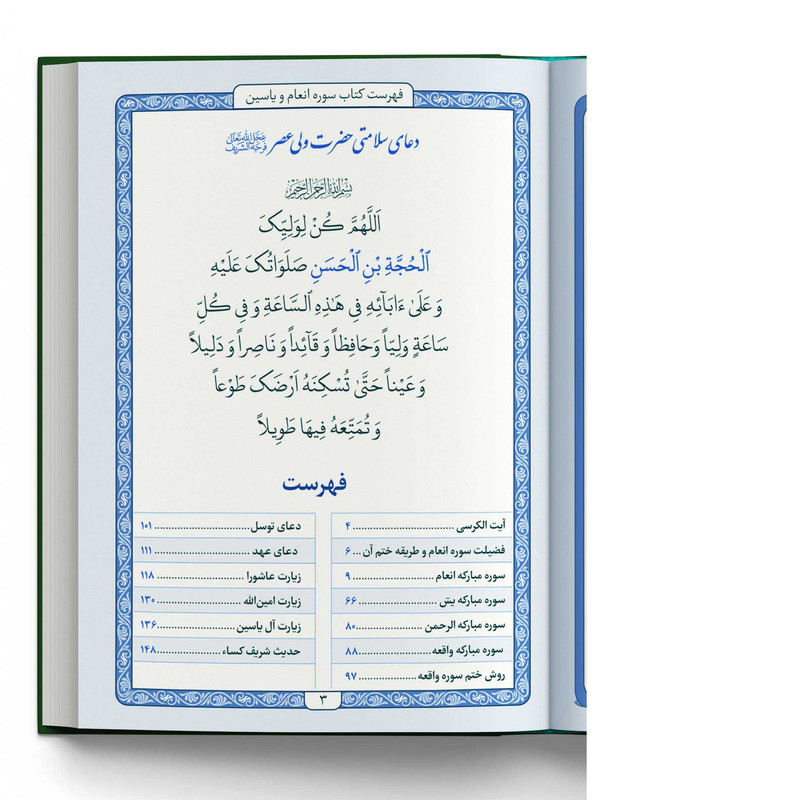 فهرست کتاب سوره انعام و یاسین
دعای سلامتی حضرت ولی عصر عجل الله تعالی فرجه الشریف
بسم الله الرحمن الرحیم
اَللَّهُمَّ کُنْ لِوَلِیِّکَ
ٱلْحُجَّةِ بْنِ ٱلْحَسَنِ صَلَوَاتُکَ عَلَیْهِ
وَ عَلَیٰ ءَابَآئِهِ فِی هَٰذِهِ ٱلسَّاعَةِ وَ فِی کُلِّ
سَاعَةٍ وَلِیّاً وَحَافِظاً وَ قَآئِداً وَ نَاصِراً وَ دَلِیلاً
وَ عَیْناً حَتَّیٰ تُسْکِنَهُ اَرْضَکَ طَوْعاً
وَ تُمَتِّعَهُ فِیهَا طَوِیلاً
فهرست
آیت الکرسی ................................ ۴
فضیلت سوره انعام و طریقه ختم آن ... ۶
سوره مبارکه انعام ........................ ۹
سوره مبارکه یس ........................ ۶۶
سوره مبارکه الرحمن .................... ۸۰
سوره مبارکه واقعه ...................... ۸۸
روش ختم سوره واقعه .................. ۹۷
دعای توسل .............................. ۱۰۱
دعای عهد .............................. ۱۱۱
زیارت عاشورا .......................... ۱۱۸
زیارت امین‌الله .......................... ۱۳۰
زیارت آل یاسین ........................ ۱۳۶
حدیث شریف کساء .................... ۱۴۸
۳